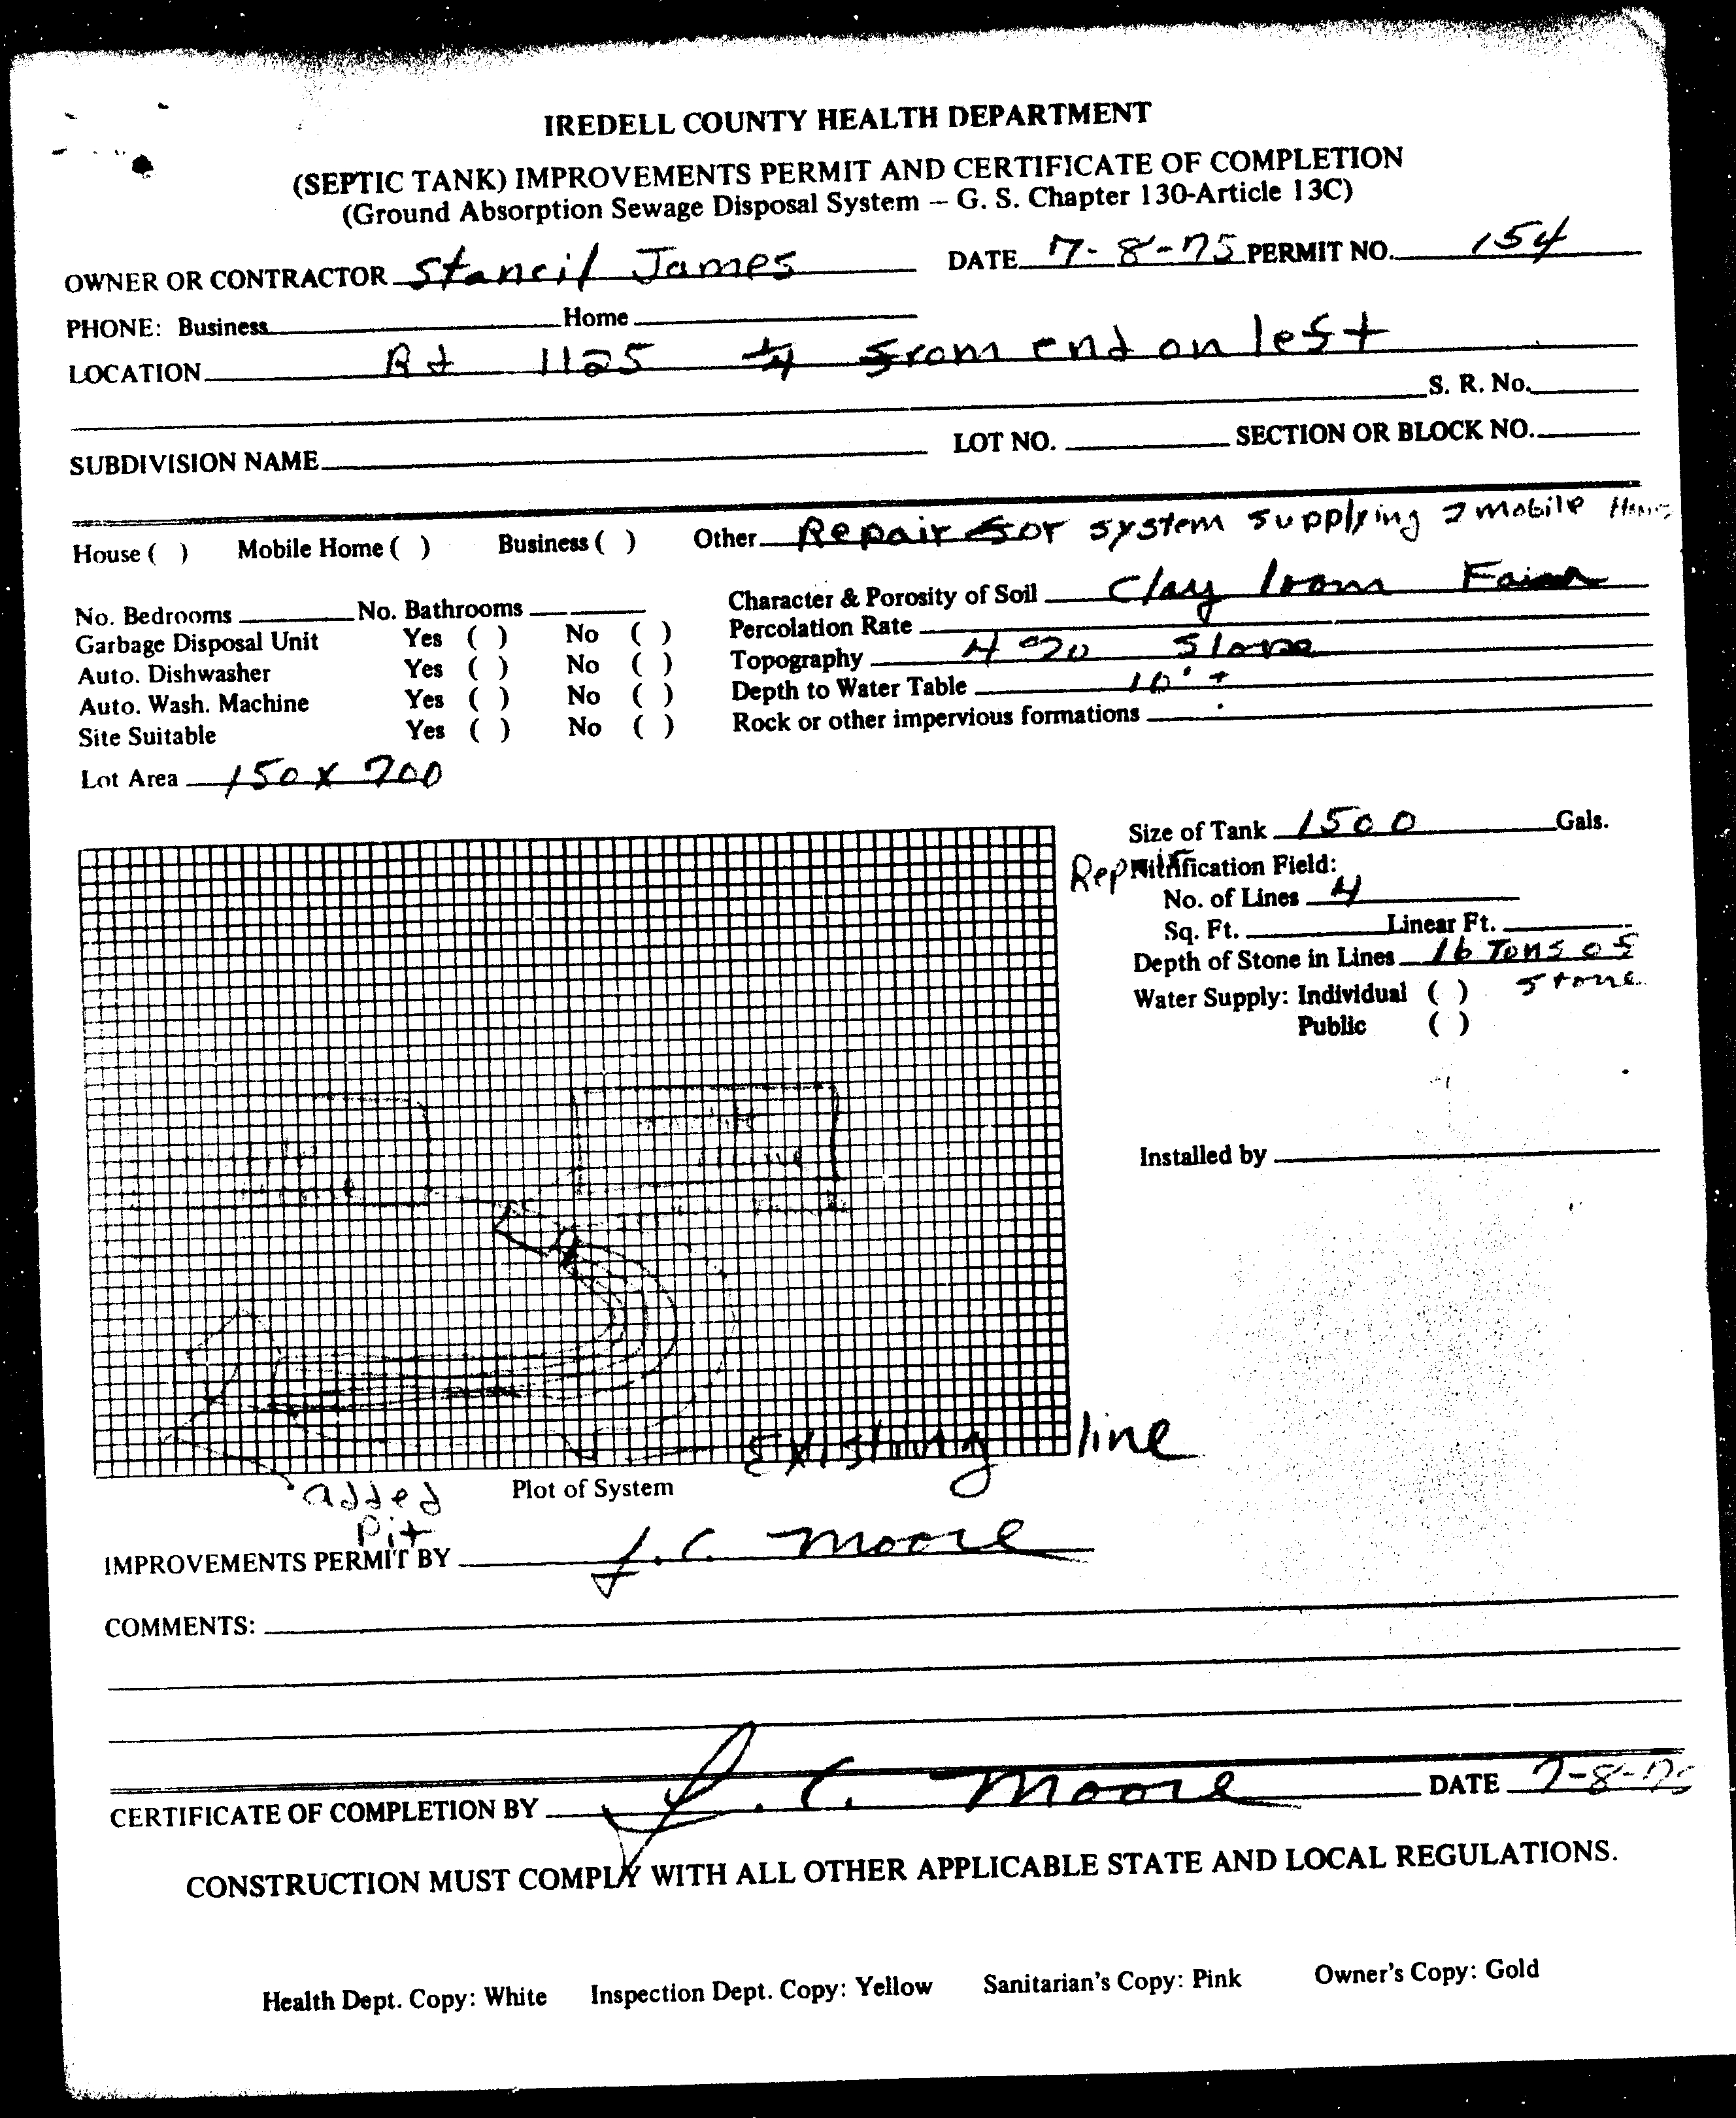 IREDELL COUNTY HEALTH DEPARTMENT
(SEPTIC TANK) IMPROVEMENTS PERMIT AND CERTIFICATE OF COMPLETION
(Ground Absorption Sewage Disposal System – G. S. Chapter 130-Article 13C)
OWNER OR CONTRACTOR Stancil James DATE 7-8-75 PERMIT NO. 154
PHONE: Business Home
LOCATION Rd 1125 from end on left
S. R. No.
SUBDIVISION NAME LOT NO. SECTION OR BLOCK NO.
House ( ) Mobile Home ( ) Business ( ) Other Repair for system supplying 2 mobile Homes
No. Bedrooms No. Bathrooms Character & Porosity of Soil Clay loam Fair
Garbage Disposal Unit Yes ( ) No ( ) Percolation Rate
Auto. Dishwasher Yes ( ) No ( ) Topography 4% Slope
Auto. Wash. Machine Yes ( ) No ( ) Depth to Water Table 10' +
Site Suitable Yes ( ) No ( ) Rock or other impervious formations
Lot Area 150 x 200
Size of Tank 1500 Gals.
Repair Nitrification Field:
No. of Lines 4
Sq. Ft. Linear Ft.
Depth of Stone in Lines 16 Tons of
stone
Water Supply: Individual ( )
Public ( )
Installed by
existing line
added
Pit
Plot of System
IMPROVEMENTS PERMIT BY J. C. Moore
COMMENTS:
CERTIFICATE OF COMPLETION BY J. C. Moore DATE 7-8-75
CONSTRUCTION MUST COMPLY WITH ALL OTHER APPLICABLE STATE AND LOCAL REGULATIONS.
Health Dept. Copy: White Inspection Dept. Copy: Yellow Sanitarian's Copy: Pink Owner's Copy: Gold